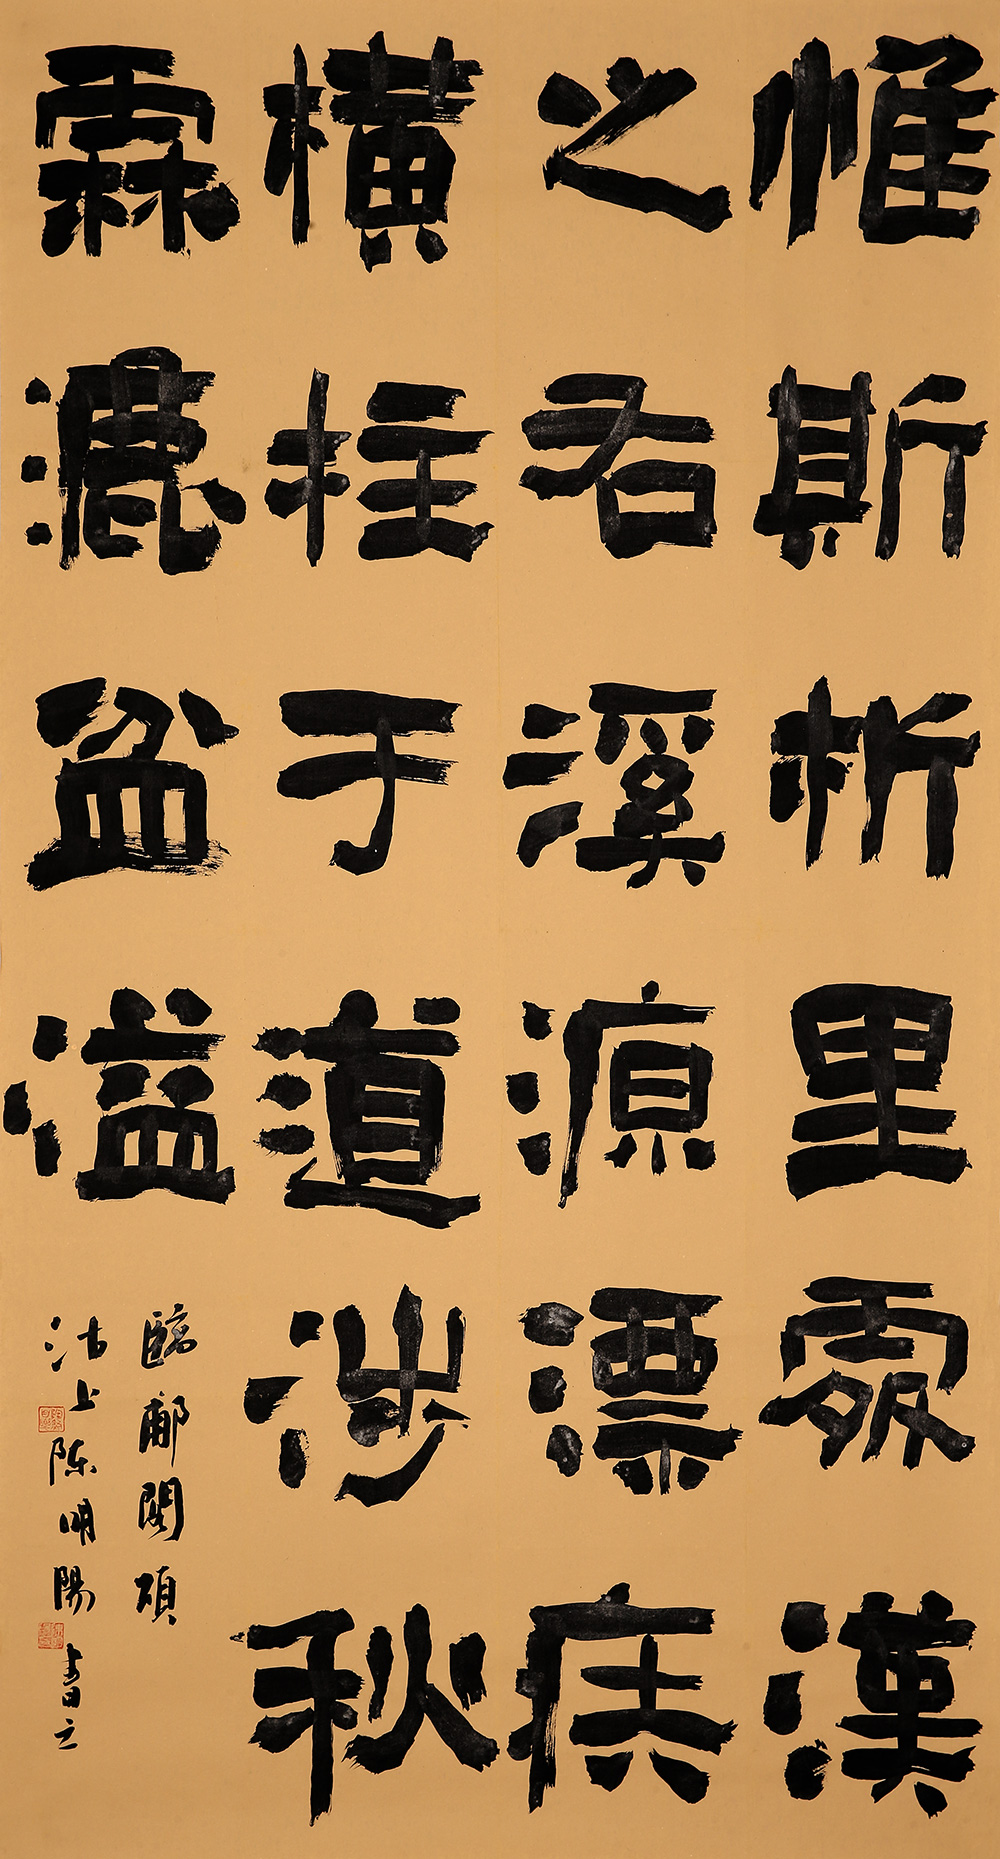 惟斯析里處漢
之右溪源漂疾
橫柱于道涉秋
霖漉盆溢
臨郙閣頌
沽上陈明陽書之